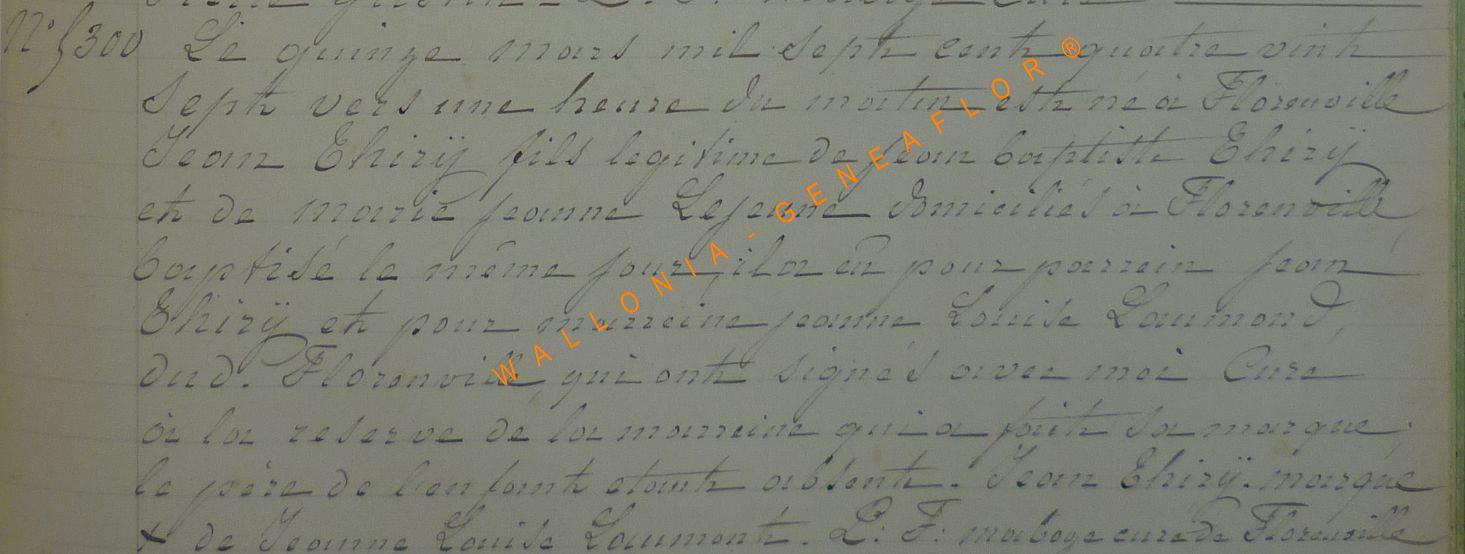 N° 5300 Le quinze mars mil sept cent quatre vint
sept vers une heure du matin est né à Florenville
Jean Thirÿ fils legitime de jean baptiste Thirÿ
et de marie jeanne Lejeune domiciliés à Florenville
baptisé le même jour, il a eû pour parrein jean
Thirÿ et pour marreine jeanne Louise Laumond,
dud. Florenville qui ont signés avec moi Curé
à la reserve de la marreine qui a fait sa marque;
le père de l'enfant etant absent. Jean Thirÿ. marque
+ de Jeanne Louise Laumont. P: F: curé de Florenville
WALLONIA - GENEAFLOR ®